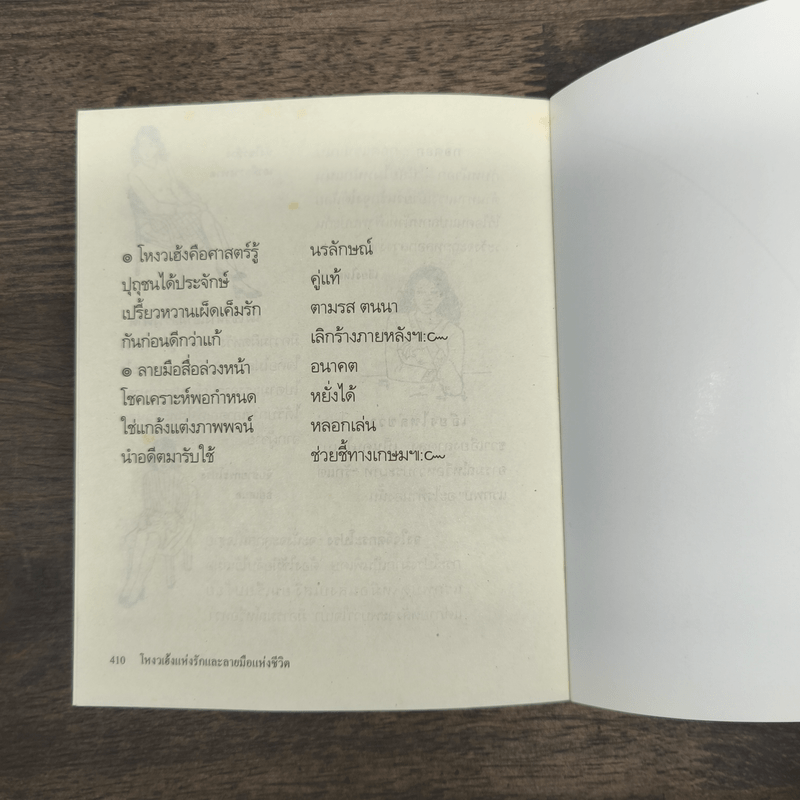 ๏ โหงวเฮ้งคือศาสตร์รู้ นรลักษณ์
ปุถุชนได้ประจักษ์ คู่แท้
เปรี้ยวหวานเผ็ดเค็มรัก ตามรส ตนนา
กันก่อนดีกว่าแก้ เลิกร้างภายหลังฯ๛
๏ ลายมือสื่อล่วงหน้า อนาคต
โชคเคราะห์พอกำหนด หยั่งได้
ใช่แกล้งแต่งภาพพจน์ หลอกเล่น
นำอดีตมารับใช้ ช่วยชี้ทางเกษมฯ๛
410 โหงวเฮ้งแห่งรักและลายมือแห่งชีวิต